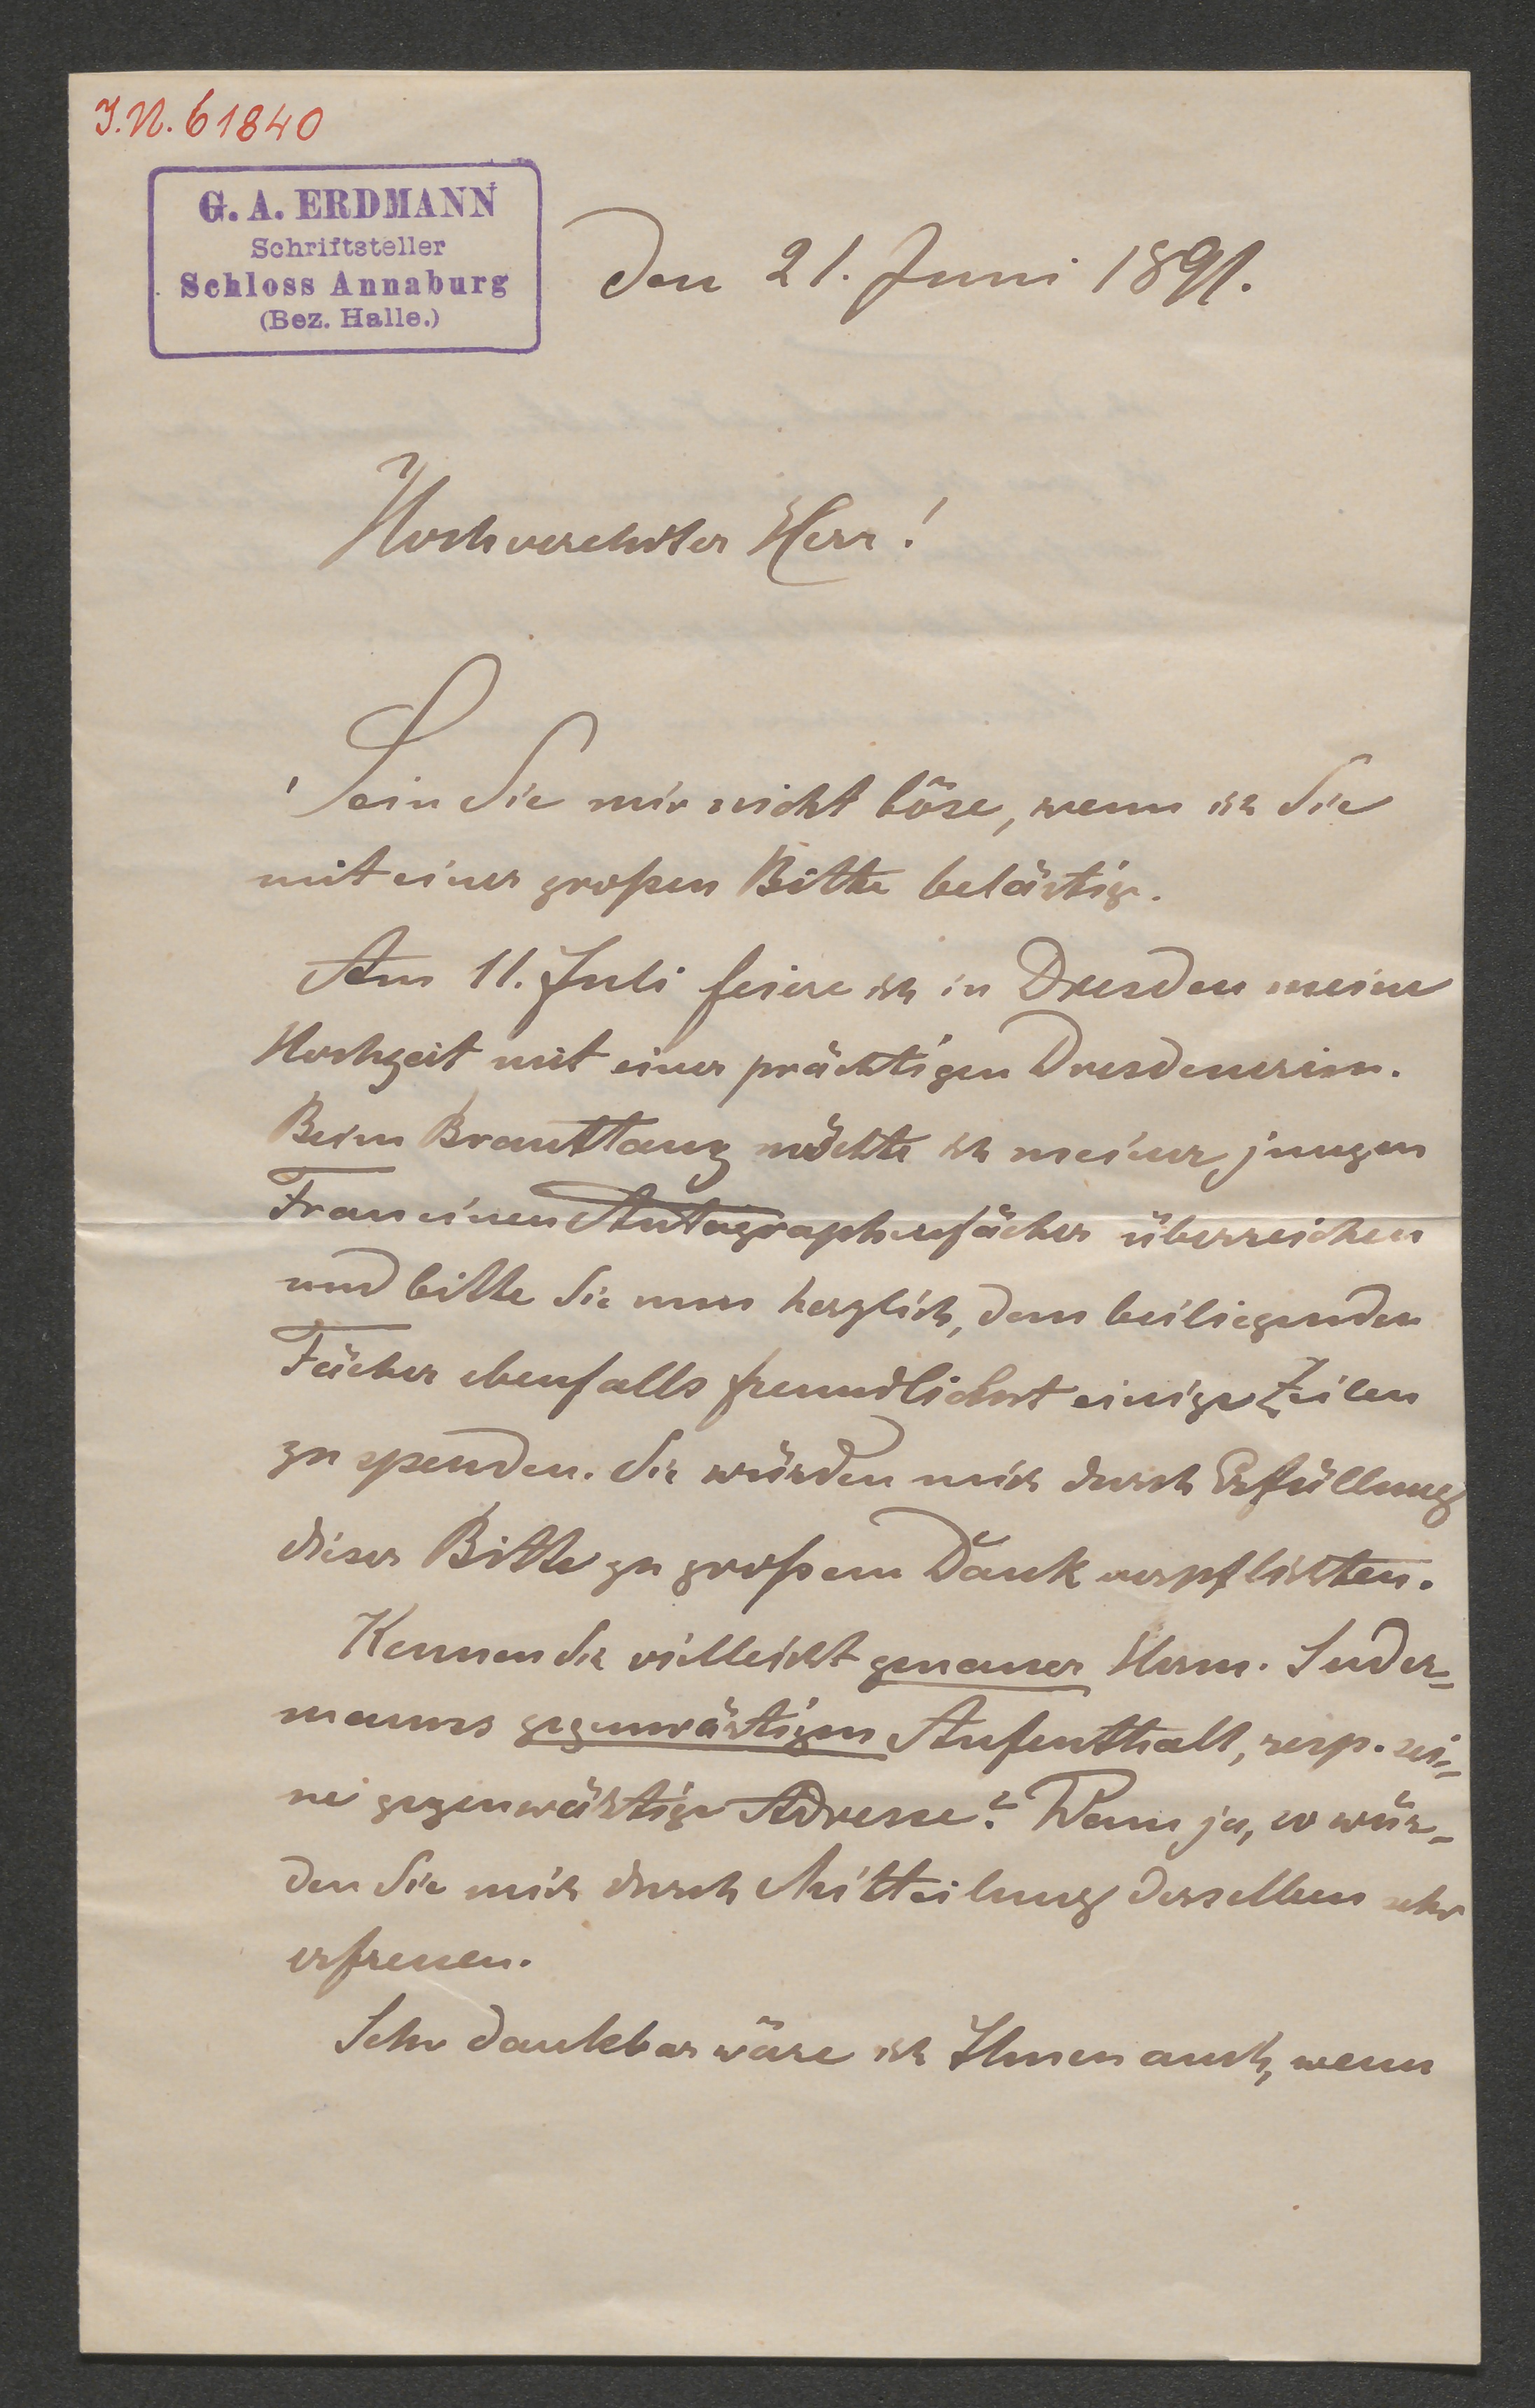 I.N. 61840
G. A. ERDMANN
Schriftsteller
Schloss Annaburg
(Bez. Halle.)
den 21. Juni 1891.
Hochverehrter Herr!
Sein Sie mir nicht böse, wenn ich Sie
mit einer großen Bitte belästige.
Am 11. Juli feiere ich in Dresden meine
Hochzeit mit einer prächtigen Dresdenerin.
Beim Brauttanz möchte ich meiner jungen
Frau einen Autographenfächer überreichen
und bitte Sie nun herzlich, dem beiliegenden
Fächer ebenfalls freundlichst einige Zeilen
zu spenden. Sie würden mich durch Erfüllung
dieser Bitte zu großem Dank verpflichten.
Kennen Sie vielleicht genauer Herm. Suder-
manns gegenwärtigen Aufenthalt, resp. sei-
ne gegenwärtige Adresse? Wenn ja, so wür-
den Sie mich durch Mitteilung derselben sehr
erfreuen.
Sehr dankbar wäre ich Ihnen auch, wenn